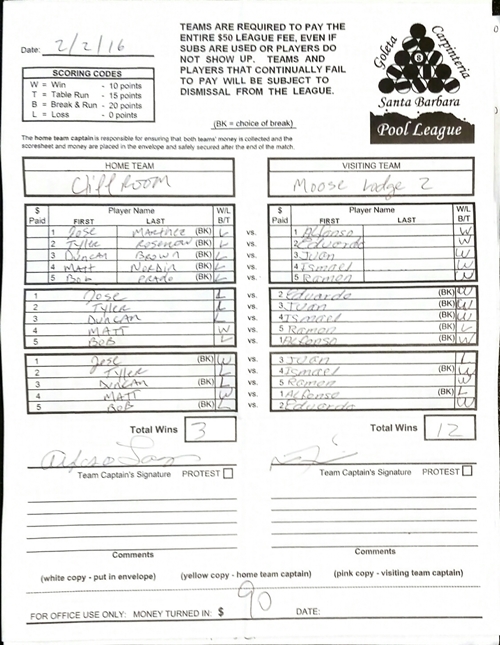 Date: 2/2/16
TEAMS ARE REQUIRED TO PAY THE
ENTIRE $50 LEAGUE FEE, EVEN IF
SUBS ARE USED OR PLAYERS DO
NOT SHOW UP. TEAMS AND
PLAYERS THAT CONTINUALLY FAIL
TO PAY WILL BE SUBJECT TO
DISMISSAL FROM THE LEAGUE.
SCORING CODES
W = Win - 10 points
T = Table Run - 15 points
B = Break & Run - 20 points
L = Loss - 0 points
(BK = choice of break)
Goleta Carpinteria
8
Santa Barbara
Pool League
The home team captain is responsible for ensuring that both teams' money is collected and the
scoresheet and money are placed in the envelope and safely secured after the end of the match.
HOME TEAM VISITING TEAM
Cliff Room Moose Lodge 2
$ Paid Player Name FIRST LAST W/L B/T $ Paid Player Name FIRST LAST W/L B/T
1 Jose Martinez (BK) L vs. 1 Alfonso W
2 Tyler Rosenow (BK) L vs. 2 Eduardo W
3 Duncan Brown (BK) L vs. 3 Juan W
4 Matt Nordin (BK) L vs. 4 Ismael W
5 Bob Prado (BK) L vs. 5 Ramon W
1 Jose L vs. 2 Eduardo (BK) W
2 Tyler L vs. 3 Juan (BK) W
3 Duncan L vs. 4 Ismael (BK) W
4 Matt W vs. 5 Ramon (BK) L
5 Bob L vs. 1 Alfonso (BK) W
1 Jose (BK) W vs. 3 Juan L
2 Tyler L vs. 4 Ismael (BK) W
3 Duncan (BK) L vs. 5 Ramon W
4 Matt W vs. 1 Alfonso (BK) L
5 Bob (BK) L vs. 2 Eduardo W
Total Wins 3 Total Wins 12
Team Captain's Signature PROTEST Team Captain's Signature PROTEST
Comments Comments
(white copy - put in envelope) (yellow copy - home team captain) (pink copy - visiting team captain)
FOR OFFICE USE ONLY: MONEY TURNED IN: $ 90 DATE: